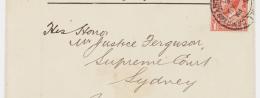 His Honor
Mr Justice Ferguson,
Supreme Court
Sydney